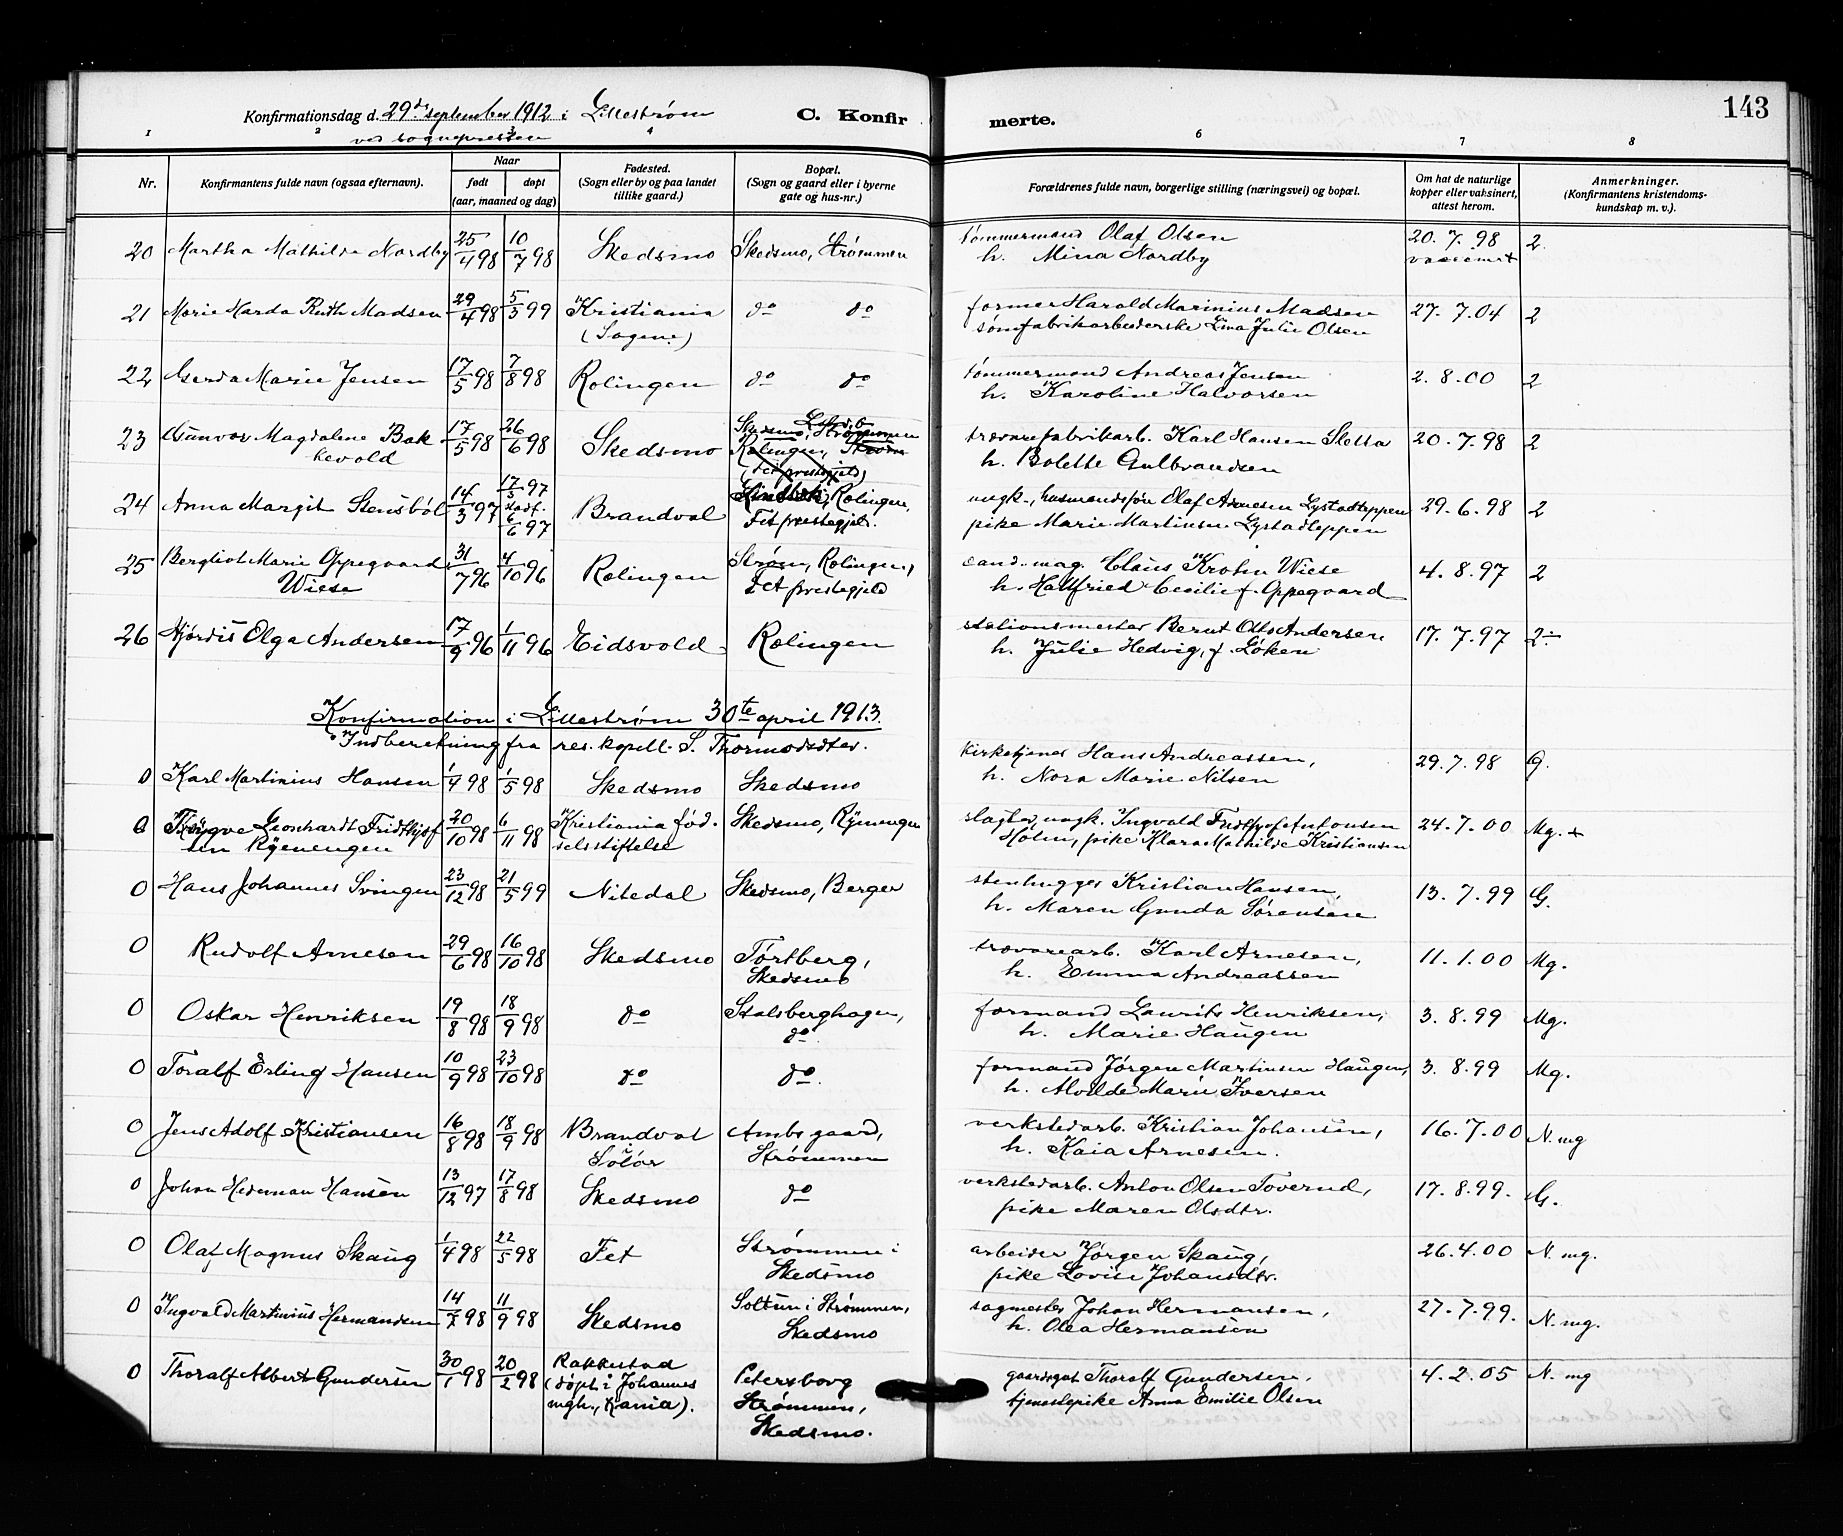 143
Konfirmationsdag d. 29de september 1912 i Lillestrøm C. Konfirmerte.
ved sognepresten
1 2 3 4 6 7 8
Nr. Konfirmantens fulde navn (ogsaa efternavn). Naar født døpt (aar, maaned og dag) Fødested. (Sogn eller by og paa landet tillike gaard.) Bopæl. (Sogn og gaard eller i byerne gate og hus-nr.) Forældrenes fulde navn, borgerlige stilling (næringsvei) og bopæl. Om hat de naturlige kopper eller vaksinert, attest herom. Anmerkninger. (Konfirmantens kristendomskundskap m. v.).
20 Martha Mathilde Nordby 25/4 98 10/7 98 Skedsmo Skedsmo, Strømmen tømmermand Olaf Olsen 20.7.98 2.
h. Mina Nordby
21 Marie Harda Ruth Madsen 29/4 98 5/3 99 Kristiania do do former Harald Marinius Madsen 27.7.04 2
(Sagene) sømfabrikarbeiderske Lina Julie Olsen
22 Gerda Marie Jensen 17/5 98 7/8 98 Rælingen do do tømmermand Andreas Jensen 2.8.00 2
h. Karoline Halvorsen
23 Gunvor Magdalene Bakkevold 17/5 98 26/6 98 Skedsmo Skedsmo, Strømmen trævarefabrikarb. Karl Hansen Sletta 20.7.98 2
Rælingen, Strøm h. Bolette Gulbrandsen
(Fet prestegjeld)
24 Anna Margit Stensbøl 14/3 97 17/5 97 Brandval Rælingen, ungk., husmandssøn Olaf Arnesen Lystadteppen 29.6.98 2
stadf. 6/6 97 Fet prestegjeld. pike Marie Martinsen Lystadteppen
25 Bergliot Marie Oppegaard 31/7 96 4/10 96 Rælingen Strøm, Rælingen, cand. mag. Claus Krohn Wiese 4.8.97 2
Wiese Fet prestegjeld h. Hallfried Cecilie f. Oppegaard
26 Hjørdis Olga Andersen 17/9 96 1/11 96 Eidsvold Rælingen stationsmester Bernt Otto Andersen 17.7.97 2÷
h. Julie Hedvig, f. Løken
Konfirmation i Lillestrøm 30te april 1913.
Indberetning fra res. kapell. S. Thormodsæter.
0 Karl Martinius Hansen 1/4 98 1/5 98 Skedsmo Skedsmo kirketjener Hans Andreassen, 29.7.98 G.
h. Nora Marie Nilsen
0 Trygve Leonhardt Fridthjof 20/10 98 6/11 98 Kristiania fød- Skedsmo, Ryenengen slagter, ungk. Ingvald Fridthjof Antonsen 24.7.00 Mg. +
sen Ryenengen selsstiftelse Holm, pike Klara Mathilde Kristiansen
0 Hans Johannes Svingen 23/12 98 21/5 99 Nitedal Skedsmo, Berger stenhugger Kristian Hansen, 13.7.99 G.
h. Maren Gunda Sørensen
0 Rudolf Arnesen 29/6 98 16/10 98 Skedsmo Tørtberg, trævarearb. Karl Arnesen, 11.1.00 Mg.
Skedsmo h. Emma Andreassen
0 Oskar Henriksen 19/8 98 18/9 98 do Stalsberghagen, formand Laurits Henriksen, 3.8.99 Mg.
do. h. Marie Haugen
0 Toralf Erling Hansen 10/9 98 23/10 98 do do. formand Jørgen Martinsen Haugen, 3.8.99 Mg.
h. Alvilde Marie Iversen
0 Jens Adolf Kristiansen 16/8 98 18/9 98 Brandval Ambs gaard, verkstedarb. Kristian Johansen, 16.7.00 N. mg
Solør Strømmen h. Kaia Arnesen.
0 Johan Herman Hansen 13/12 97 17/8 98 Skedsmo do verkstedarb. Anton Olsen Toverud, 17.8.99. G.
pike Maren Olsdtr.
0 Olaf Magnus Skaug 1/4 98 22/5 98 Fet Strømmen i arbeider Jørgen Skaug, 26.4.00 N. mg.
Skedsmo pike Lovise Johansdtr.
0 Ingvald Martinius Hermansen 14/7 98 11/9 98 Skedsmo Soltun i Strømmen, sagmester Johan Hermansen, 27.7.99. N. mg.
Skedsmo h. Olea Hermansen
0 Thoralf Albert Gundersen 30/1 98 20/2 98 Rakkestad Petersborg gaardsgut Thoralf Gundersen, 4.2.05 N. mg
(døpt i Johannes Strømmen, tjenestepike Anna Emilie Olsen
mgh., Kania). Skedsmo.